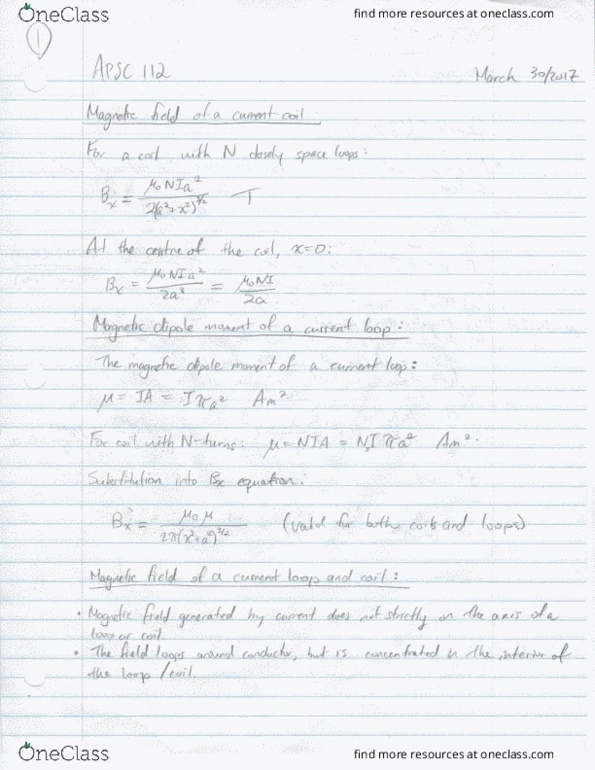 OneClass
find more resources at oneclass.com
1
APSC 112
March 30/2017
Magnetic field of a current coil
For a coil with N closely space loops:
Bx = μ0NIa² / 2(a²+x²)^3/2 T
At the centre of the coil, x=0:
Bx = μ0NIa² / 2a³ = μ0NI / 2a
Magnetic dipole moment of a current loop:
The magnetic dipole moment of a current loop:
μ = IA = Iπa² Am²
For coil with N-turns: μ = NIA = NIπa² Am².
Substitution into Bx equation:
Bx = μ0μ / 2π(x²+a²)^3/2 (valid for both coils and loops)
Magnetic field of a current loop and coil:
• Magnetic field generated by current does not strictly on the axis of a
loop or coil.
• The field loops around conductor, but is concentrated in the interior of
the loop/coil.
OneClass
find more resources at oneclass.com